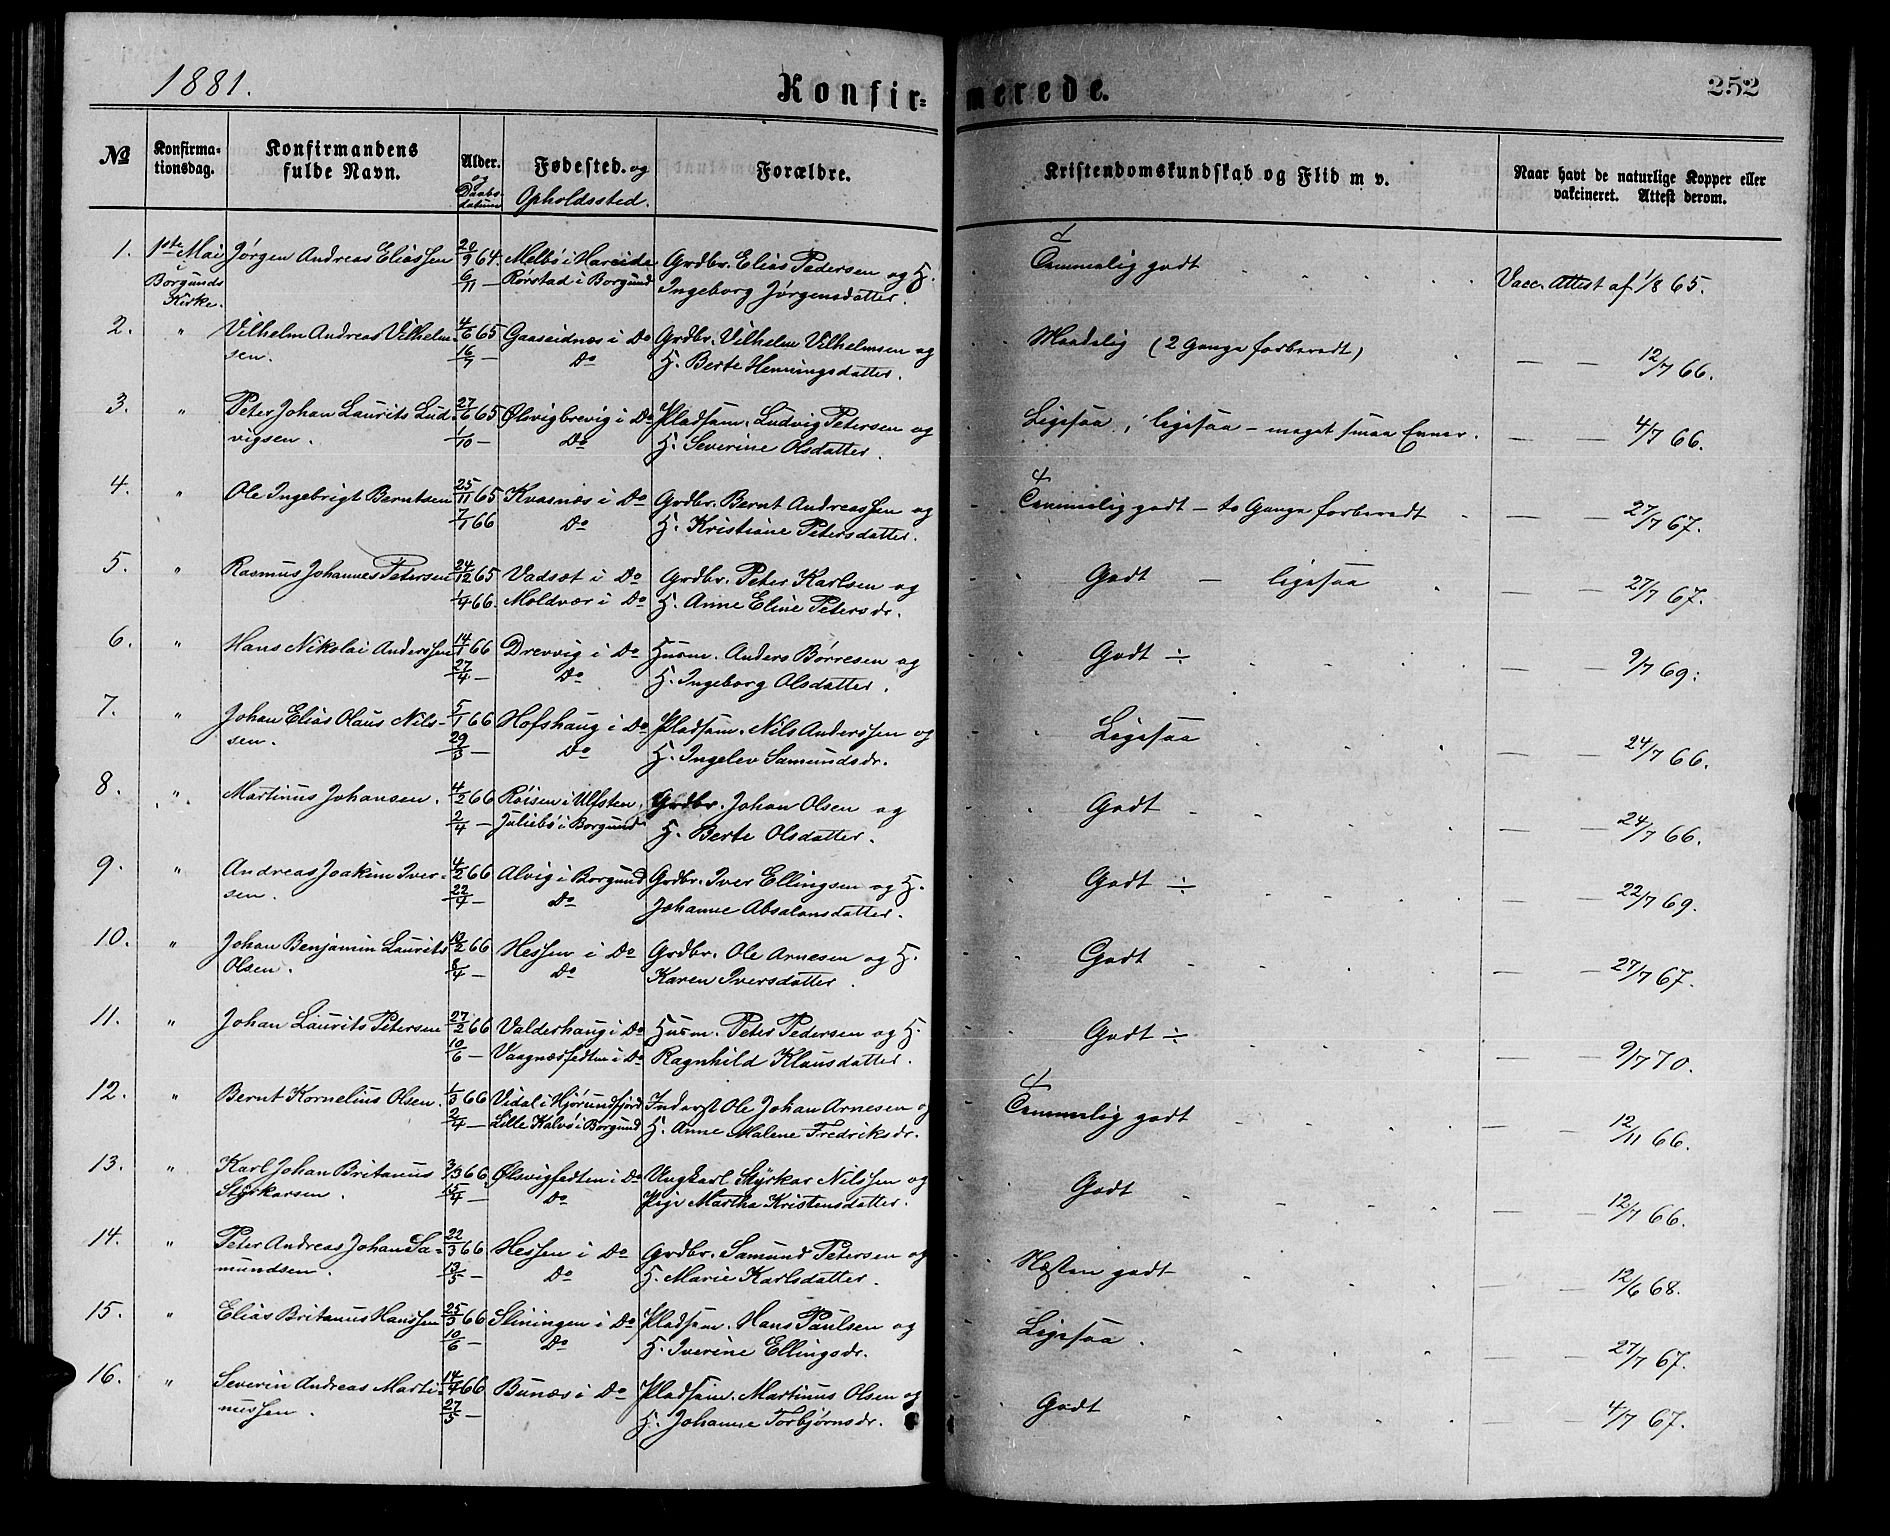 1881.
Konfir=
merede.
252
№
Konfirma-
tionsdag.
Konfirmandens
fulde Navn.
Alder.
og
Daabs-
datum
Fødested. og
Opholdssted.
Forældre.
Kristendomskundskab og Flid m v.
Naar havt de naturlige Kopper eller
vakcineret. Attest derom.
1. 1ste Mai Jørgen Andreas Eliassen 20/9 64. Melbö i Hareide Grdbr. Elias Pedersen og H. Temmelig godt Vacc. Attest af 1/8 65.
i Borgunds 6/11 — Rörstad i Borgund Ingeborg Jørgensdatter.
Kirke.
2. " Vilhelm Andreas Vilhelm- 4/6 65 Gaaseidnæs i Do Grdbr. Vilhelm Vilhelmsen og Maadelig (2 Gange forberedt) — — 12/7 66.
sen. 16/7 — Do H. Berte Henningsdatter.
3. " Peter Johan Laurits Lud- 27/6 65 Ølsvigbrevig i Do Pladsm. Ludvig Petersen og Ligesaa, ligesaa - meget smaa Evner. — — 4/7 66.
vigsen. 1/10 — Do H. Severine Olsdatter.
4. " Ole Ingebrigt Berntsen 25/11 65 Kvasnæs i Do Grdbr. Bernt Andreassen og Temmelig godt - to Gange forberedt — — 27/7 67.
7/1 66 Do H. Kristiane Petersdatter.
5. " Rasmus Johannes Petersen 24/12 65 Vadsæt i Do Grdbr. Peter Karlsen og Godt — ligesaa — — 27/7 67.
1/4 66. Moldvær i Do H. Anne Eline Petersdr.
6. " Hans Nikolai Anderssen 14/1 66 Drevvig i Do Husm. Anders Börresen og Godt ÷ — — 9/7 69.
27/4 — Do H. Ingeborg Olsdatter.
7. " Johan Elias Olaus Nils- 5/1 66 Hofshaug i Do Pladsm. Nils Anderssen og Ligesaa — — 24/7 66.
sen. 29/3 — Do H. Ingelev Samundsdr.
8. " Martinus Johansen. 4/2 66 Röisen i Ulfsten, Grdbr. Johan Olsen og Godt — — 24/7 66.
2/4 — Juliebö i Borgund H. Berte Olsdatter.
9. " Andreas Joakim Iver- 4/2 66 Alvig i Borgund Grdbr. Iver Ellingsen og H. Godt ÷ — — 22/7 69.
sen. 22/4 — Do Johanne Absalonsdatter.
10. " Johan Benjamin Laurits 13/2 66 Hessen i Do Grdbr. Ole Arnesen og H. Godt — — 27/7 67.
Olsen. 8/4 — Do Karen Iversdatter.
11. " Johan Laurits Petersen 27/2 66 Valderhaug i Do Husm. Peter Pedersen og H. Godt ÷ — — 9/7 70.
10/6 — Vaagnæsfedten i Do Ragnhild Klausdatter.
12. " Bernt Kornelius Olsen. 1/3 66 Vidal i Hjörundfjord Inderst Ole Johan Arnesen og Temmelig godt — — 12/11 66.
2/4 — Lille Kalvö i Borgund H. Anne Malene Fredriksdr.
13. " Karl Johan Britanus 3/3 66 Ølsvigfedten i Do Ungkarl Styrkar Nilssen og Godt — — 12/7 66.
Styrkarsen. 15/4 — Do Pige Martha Kristensdatter.
14. " Peter Andreas Johan Sa- 22/3 66 Hessen i Do Grdbr. Samund Petersen og Næsten godt — — 12/6 68.
mundsen. 13/5 — Do H. Marie Karlsdatter.
15. " Elias Britanus Hanssen 25/3 66 Slinningen i Do Pladsm. Hans Paulsen og Ligesaa. — — 27/7 67.
10/6 — Do H. Iverine Ellingsdr.
16. " Severin Andreas Marti- 14/4 66 Bunæs i Do Pladsm. Martinus Olsen og Godt — — 4/7 67.
nussen. 27/5 — H. Johanne Torbjørnsdr.